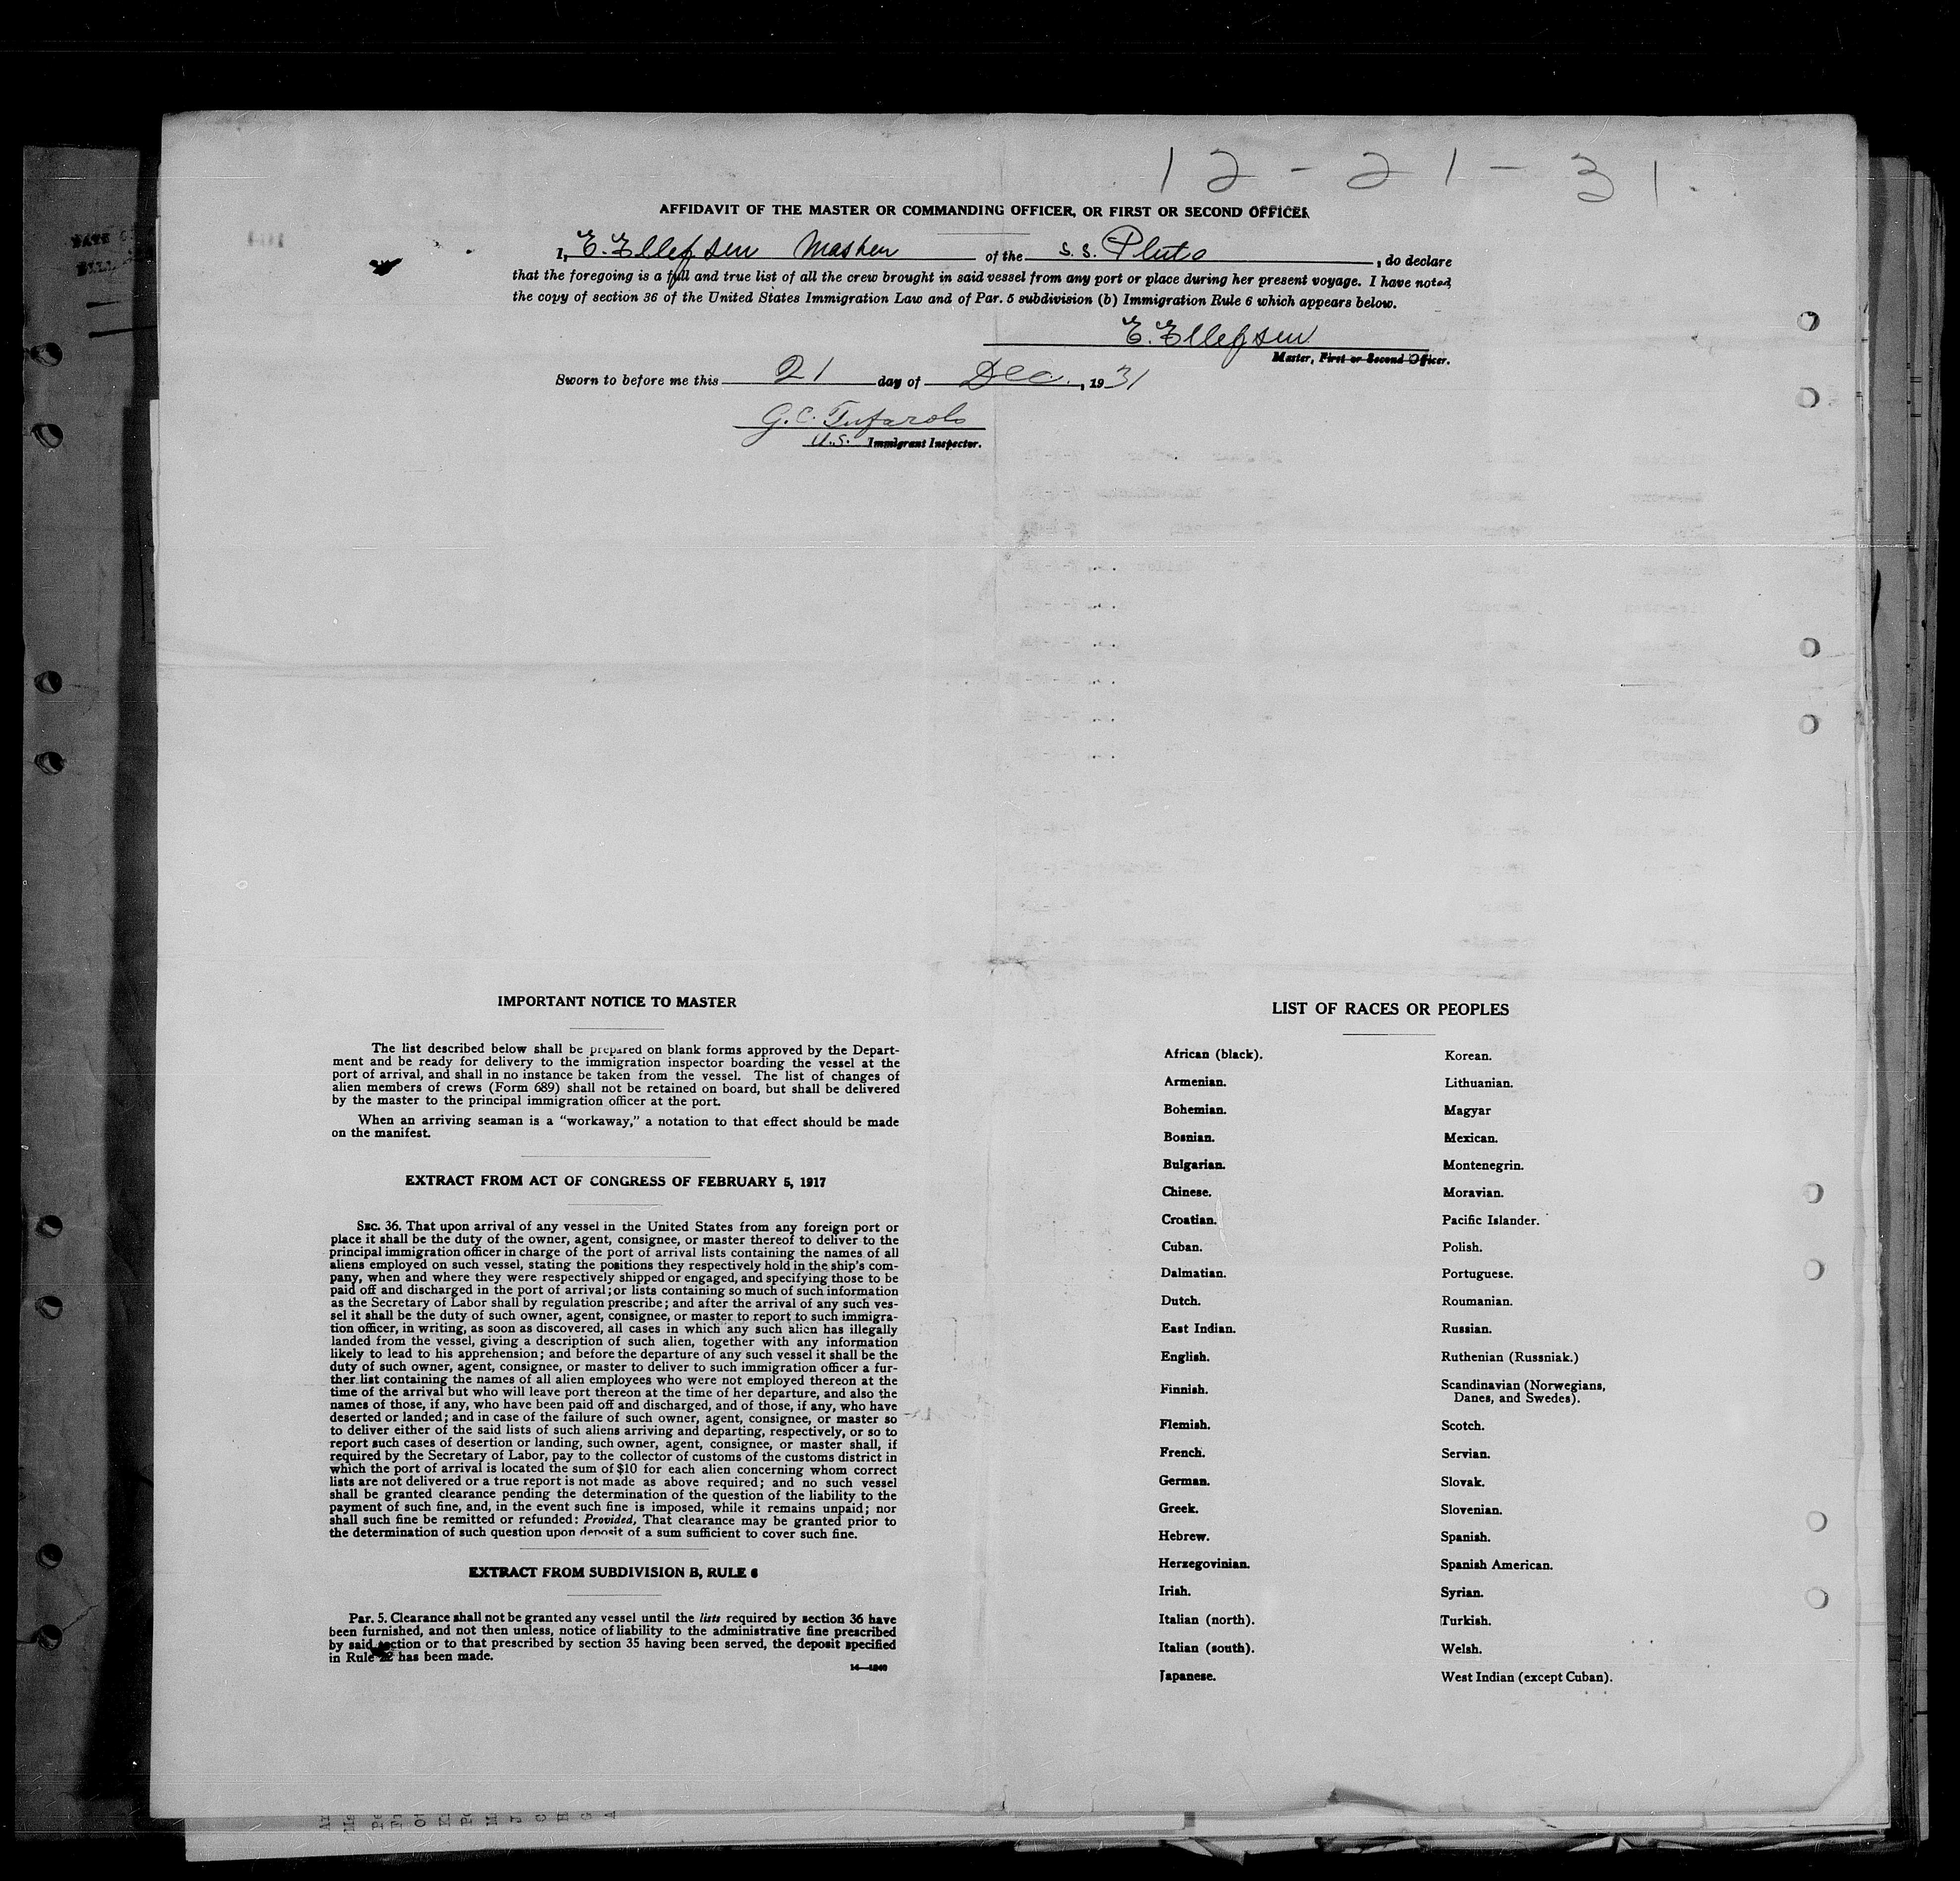 12-21-31.
AFFIDAVIT OF THE MASTER OR COMMANDING OFFICER, OR FIRST OR SECOND OFFICER
I, E. Ellefsen Master of the S.S. Pluto, do declare
that the foregoing is a full and true list of all the crew brought in said vessel from any port or place during her present voyage. I have noted
the copy of section 36 of the United States Immigration Law and of Par. 5 subdivision (b) Immigration Rule 6 which appears below.
E. Ellefsen
Master, First or Second Officer.
Sworn to before me this 21 day of Dec., 1931
G.C. Tufarolo
U.S. Immigrant Inspector.
IMPORTANT NOTICE TO MASTER
The list described below shall be prepared on blank forms approved by the Depart-
ment and be ready for delivery to the immigration inspector boarding the vessel at the
port of arrival, and shall in no instance be taken from the vessel. The list of changes of
alien members of crews (Form 689) shall not be retained on board, but shall be delivered
by the master to the principal immigration officer at the port.
When an arriving seaman is a "workaway," a notation to that effect should be made
on the manifest.
EXTRACT FROM ACT OF CONGRESS OF FEBRUARY 5, 1917
SEC. 36. That upon arrival of any vessel in the United States from any foreign port or
place it shall be the duty of the owner, agent, consignee, or master thereof to deliver to the
principal immigration officer in charge of the port of arrival lists containing the names of all
aliens employed on such vessel, stating the positions they respectively hold in the ship's com-
pany, when and where they were respectively shipped or engaged, and specifying those to be
paid off and discharged in the port of arrival; or lists containing so much of such information
as the Secretary of Labor shall by regulation prescribe; and after the arrival of any such ves-
sel it shall be the duty of such owner, agent, consignee, or master to report to such immigra-
tion officer, in writing, as soon as discovered, all cases in which any such alien has illegally
landed from the vessel, giving a description of such alien, together with any information
likely to lead to his apprehension; and before the departure of any such vessel it shall be the
duty of such owner, agent, consignee, or master to deliver to such immigration officer a fur-
ther list containing the names of all alien employees who were not employed thereon at the
time of the arrival but who will leave port thereon at the time of her departure, and also the
names of those, if any, who have been paid off and discharged, and of those, if any, who have
deserted or landed; and in case of the failure of such owner, agent, consignee, or master so
to deliver either of the said lists of such aliens arriving and departing, respectively, or so to
report such cases of desertion or landing, such owner, agent, consignee, or master shall, if
required by the Secretary of Labor, pay to the collector of customs of the customs district in
which the port of arrival is located the sum of $10 for each alien concerning whom correct
lists are not delivered or a true report is not made as above required; and no such vessel
shall be granted clearance pending the determination of the question of the liability to the
payment of such fine, and, in the event such fine is imposed, while it remains unpaid; nor
shall such fine be remitted or refunded: Provided, That clearance may be granted prior to
the determination of such question upon deposit of a sum sufficient to cover such fine.
EXTRACT FROM SUBDIVISION B, RULE 6
Par. 5. Clearance shall not be granted any vessel until the lists required by section 36 have
been furnished, and not then unless, notice of liability to the administrative fine prescribed
by said section or to that prescribed by section 35 having been served, the deposit specified
in Rule 22 has been made.
14—1240
LIST OF RACES OR PEOPLES
African (black).
Armenian.
Bohemian.
Bosnian.
Bulgarian.
Chinese.
Croatian.
Cuban.
Dalmatian.
Dutch.
East Indian.
English.
Finnish.
Flemish.
French.
German.
Greek.
Hebrew.
Herzegovinian.
Irish.
Italian (north).
Italian (south).
Japanese.
Korean.
Lithuanian.
Magyar
Mexican.
Montenegrin.
Moravian.
Pacific Islander.
Polish.
Portuguese.
Roumanian.
Russian.
Ruthenian (Russniak.)
Scandinavian (Norwegians,
Danes, and Swedes).
Scotch.
Servian.
Slovak.
Slovenian.
Spanish.
Spanish American.
Syrian.
Turkish.
Welsh.
West Indian (except Cuban).